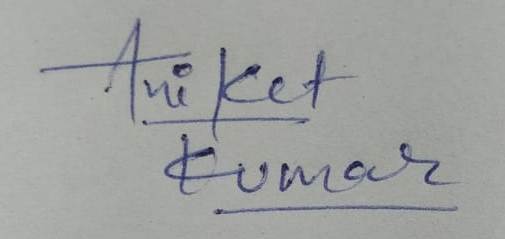 Aniket
Kumar